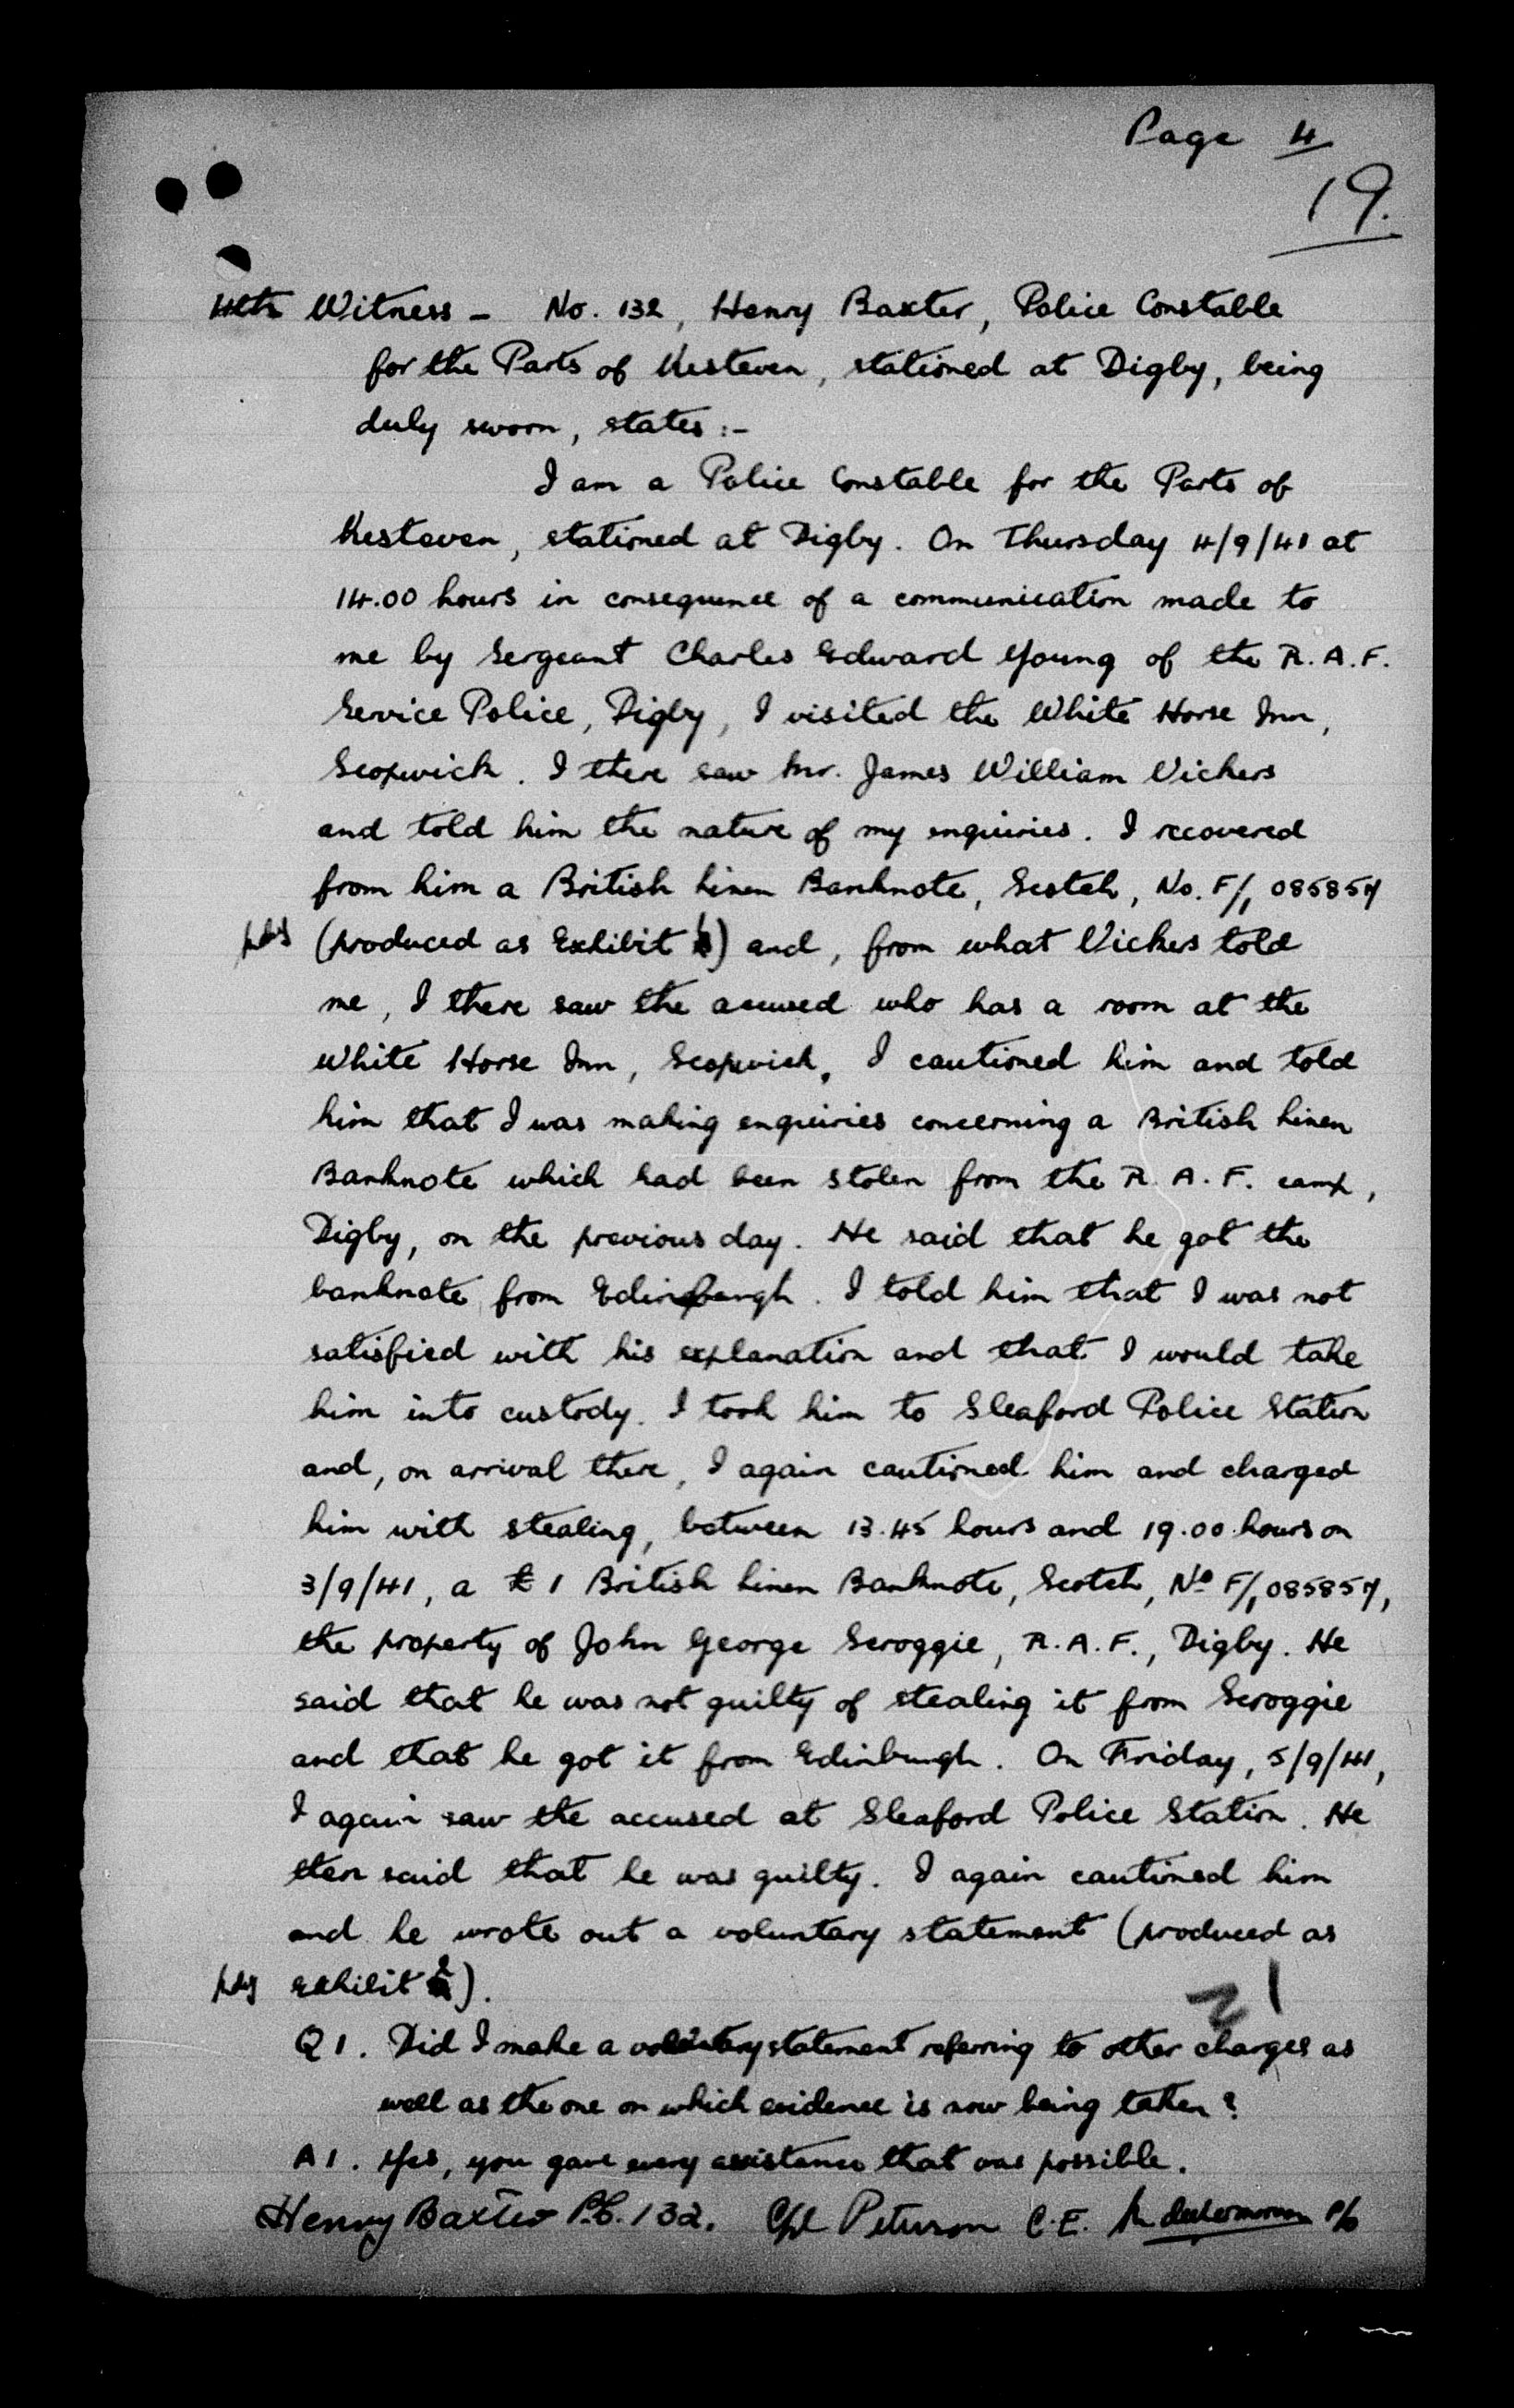 Page 4
19.
4th Witness – No. 132, Henry Baxter, Police Constable
for the Parts of Kesteven, stationed at Digby, being
duly sworn, states :-
I am a Police Constable for the Parts of
Kesteven, stationed at Digby. On Thursday 4/9/41 at
14.00 hours in consequence of a communication made to
me by Sergeant Charles Edward Young of the R.A.F.
Service Police, Digby, I visited the White Horse Inn,
Scopwick. I there saw Mr. James William Vickers
and told him the nature of my enquiries. I recovered
from him a British Linen Banknote, Scotch, No. F/1 085857
(produced as Exhibit ) and, from what Vickers told
me, I there saw the accused who has a room at the
White Horse Inn, Scopwick. I cautioned him and told
him that I was making enquiries concerning a British Linen
Banknote which had been stolen from the R.A.F. camp,
Digby, on the previous day. He said that he got the
banknote from Edinburgh. I told him that I was not
satisfied with his explanation and that I would take
him into custody. I took him to Sleaford Police Station
and, on arrival there, I again cautioned him and charged
him with stealing, between 13.45 hours and 19.00 hours on
3/9/41, a £1 British Linen Banknote, Scotch, No F/1 085857,
the property of John George Scroggie, R.A.F., Digby. He
said that he was not guilty of stealing it from Scroggie
and that he got it from Edinburgh. On Friday, 5/9/41,
I again saw the accused at Sleaford Police Station. He
then said that he was guilty. I again cautioned him
and he wrote out a voluntary statement (produced as
Exhibit ).
Q1. Did I make a voluntary statement referring to other charges as
well as the one on which evidence is now being taken?
A1. Yes, you gave every assistance that was possible.
Henry Baxter P.C. 132. Cpl Peturson C.E. P/O